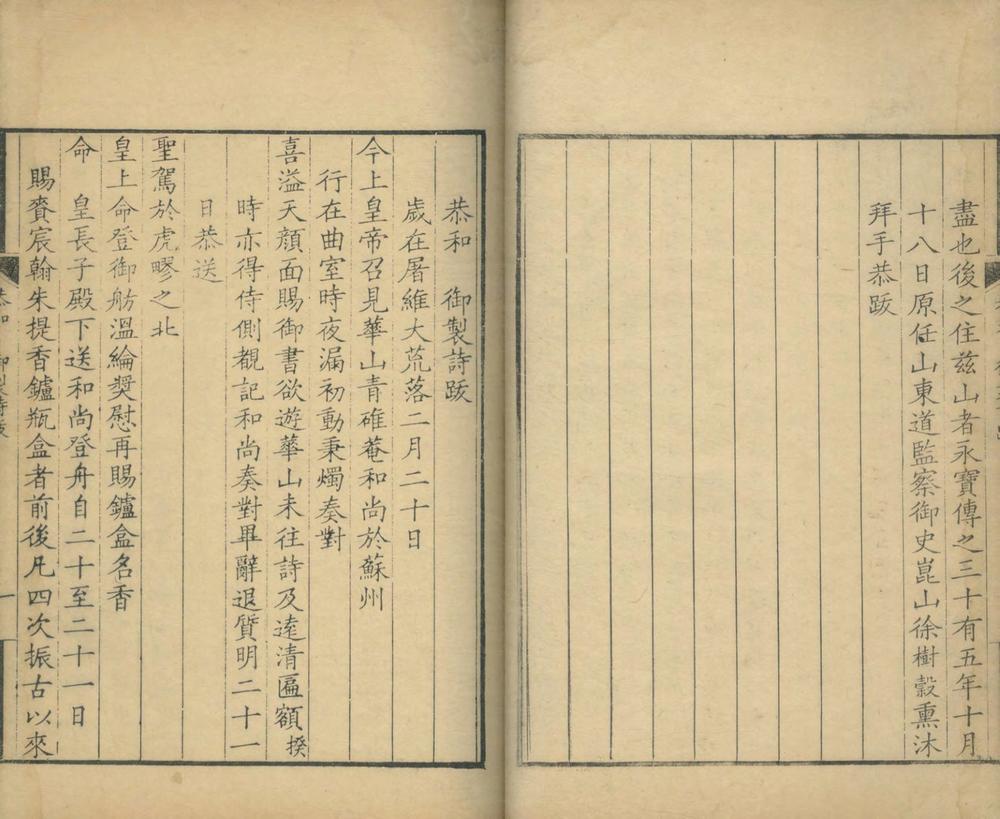 盡也後之住兹山者永寶傳之三十有五年十月
十八日原任山東道監察御史崑山徐樹榖熏沐
拜手恭跋
恭和　御製詩跋
歲在屠維大荒落二月二十日
今上皇帝召見華山青碓菴和尚於蘇州
行在曲室時夜漏初動秉燭奏對
喜溢天顏面賜御書欲遊華山未往詩及逺清匾額揆
時亦得侍側覩記和尚奏對畢辭退質明二十一
日恭送
聖駕於虎疁之北
皇上命登御舫溫綸奬慰再賜鑪盒名香
命　皇長子殿下送和尚登舟自二十至二十一日
賜賚宸翰朱提香鑪瓶盒者前後凡四次振古以來
恭和　御製詩跋
一